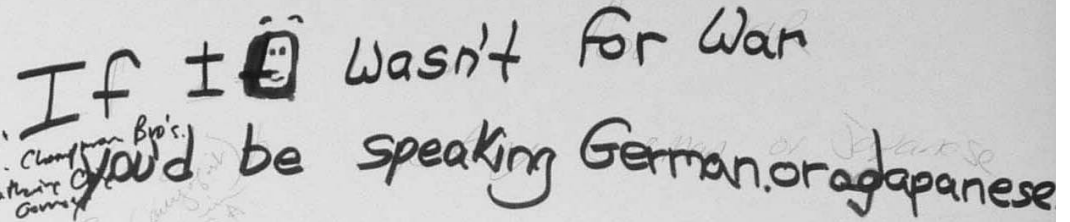 If It wasn't for War
Bro's.
you'd be speaking German.or Japanese